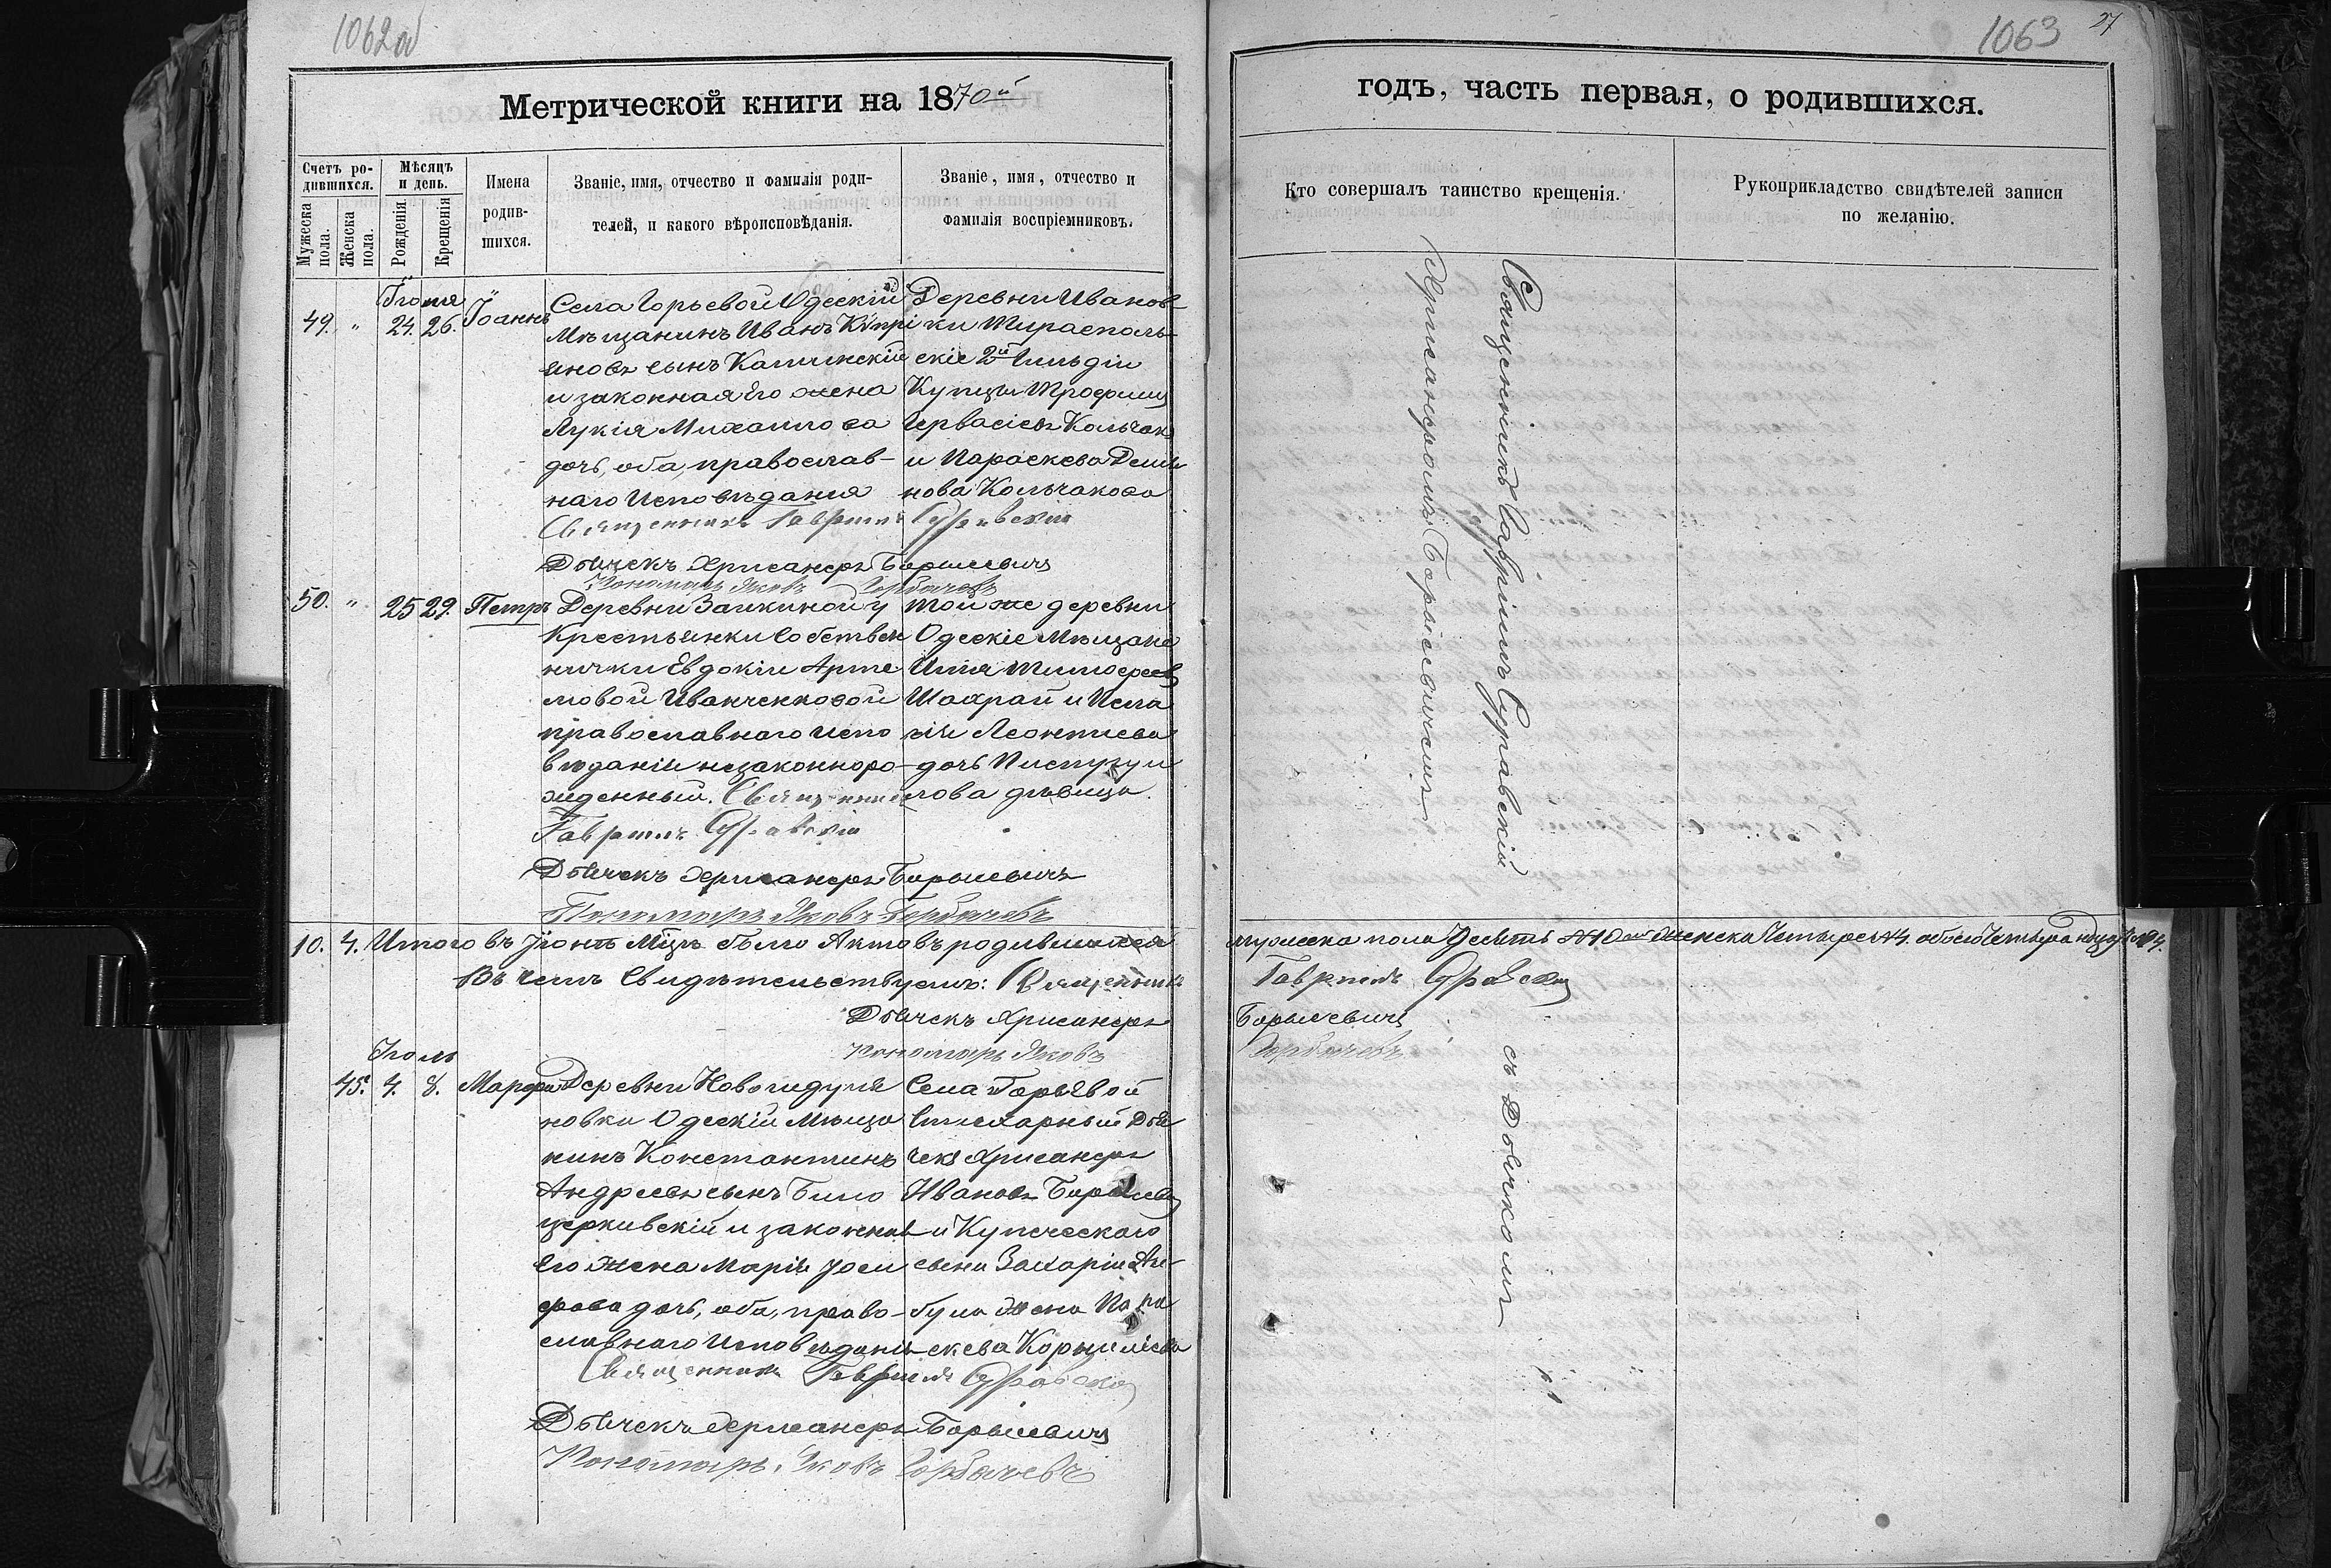 1062об
Метрической книги на 1870й
Счетъ родившихся.
Мужеска пола.
Женска пола.
Мѣсяцъ и день.
Рожденія
Крещенія
Имена родившихся.
Званіе, имя, отчество и фамилія родителей, и какого вѣроисповѣданія.
Званіе, имя, отчество и фамилія воспріемниковъ.
Іюня
49. " 24. 26. Іоаннъ
Села Горьевой Одескій
Мѣщанинъ Иванъ Кипрі
яновъ сынъ
и законная его жена
Лукія Михаилова
дочь, оба, православ-
наго Исповѣданія
Деревни Иванов
ки Тирасполь
скіе 2й Гильдіи
Купцы Трофимъ
Гервасіевъ Кольчакъ
и Параскева Деми
нова Кольчакова
Священникъ Гавріилъ
Дьячекъ Хрисанфъ Борысевичъ
Пономарь Яковъ Горбачевъ
50. " 25 29. Петръ
Деревни Заикиной у
Крестьянки собствен
нички Евдокіи Арте
мовой Иванченковой
православнаго испо
вѣданія незаконноро-
жденный. Священникъ
Той же деревни
Одескіе Мѣщане
Илія Тимофеевъ
Шахрай и Пела
гія Леонтіева
дочь
лова дѣвица.
Гавріилъ
Дьячекъ Хрисанфъ Борысевичъ
Пономарь Яковъ Горбачевъ
10. 4. Итого въ Іюнѣ Мцѣ было Актовъ родившихся
Въ чемъ Свидѣтельствуемъ: Священникъ
Дьячекъ Хрисанфъ
Пономарь Яковъ
Іюль
45. 4. 8. Марфа
Деревни
новки Одескій Мѣща
нинъ Константинъ
Андреевъ сынъ Било
церкивскій и законная
его жена Марія Іоси
фова дочь, оба, право-
славнаго Исповѣданія
Села Горьевой
Стихарный Дья
чекъ Хрисанфъ
Ивановъ Борысевичъ
и Купеческаго
сына Захаріи
жена Пара
скева Корнилiева
Священникъ Гавріилъ
Дьячекъ Хрисанфъ Борысевичъ
Пономарь Яковъ Горбачевъ
1063
27
годъ, часть первая, о родившихся.
Кто совершалъ таинство крещенія.
Рукоприкладство свидѣтелей записи по желанію.
Священникъ Гавріилъ
съ Дьячкомъ
Хрисанфомъ Борысевичемъ
мужеска пола Десять №10 женска Четыре №4. обоего Четырнадцать №14.
Гавріилъ
Борысевичъ
Горбачевъ